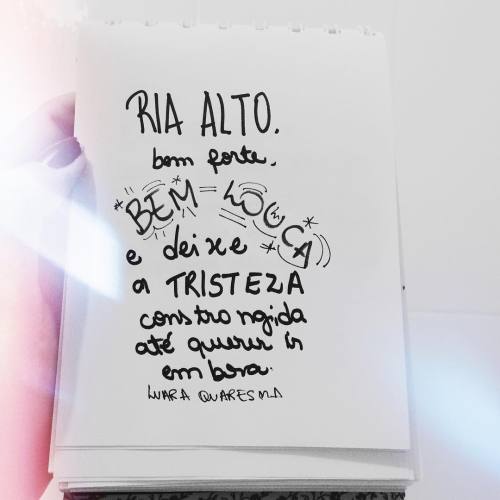 RIA ALTO.
bem forte.
BEM LOUCA
e deixe
a TRISTEZA
constrangida
até querer ir
embora.
LUARA QUARESMA